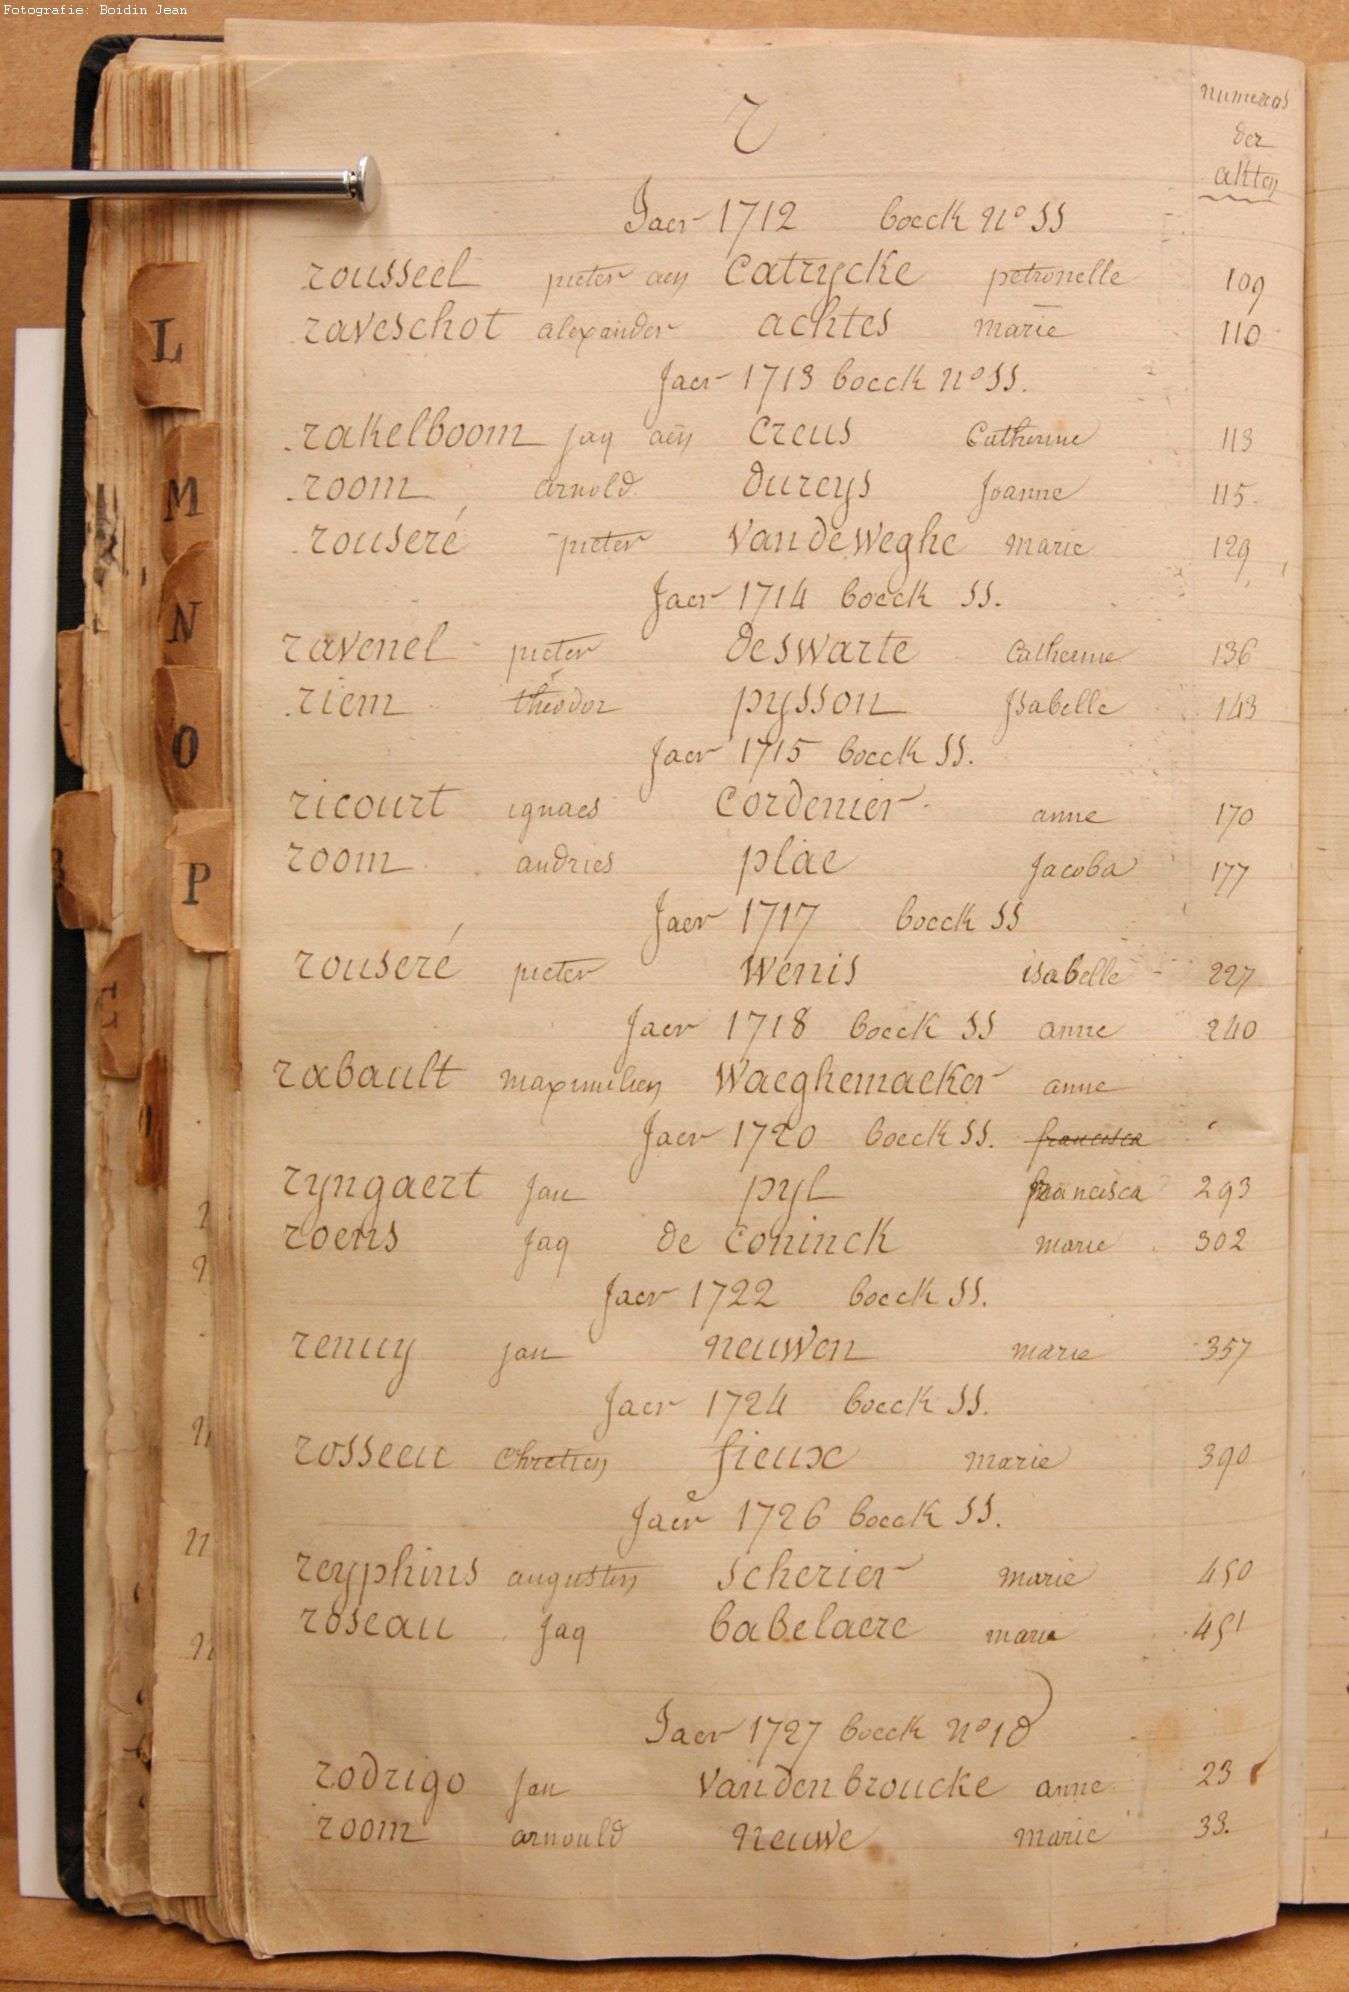 Fotografie: Boidin Jean
numeros
der
akten
r
Jaer 1712 boeck nº SS
rousseel pieter aen Catrycke petronelle 109
raveschot alexander achtes marie 110
Jaer 1713 boeck nº SS.
rakelboom jaq aen Creus Catherine 113
room arnold dureys Joanne 115
rouseré pieter vandeweghe marie 129
Jaer 1714 boeck SS.
ravenel pieter deswarte Catherine 136
riem théodor pysson Isabelle 143
Jaer 1715 boeck SS.
ricourt ignaes Cordenier anne 170
room andries plae Jacoba 177
Jaer 1717 boeck SS
rouseré pieter wenis isabelle 227
Jaer 1718 boeck SS anne 240
rabault maximilien waeghemaeker anne
Jaer 1720 boeck SS. francisca
ryngaert jan pyl francisca 293
roens jaq de Coninck marie 302
Jaer 1722 boeck SS.
renuy jan neuwen marie 357
Jaer 1724 boeck SS.
rosseeu Chretien fieux marie 390
Jaer 1726 boeck SS.
reyphins augusten scherier marie 450
roseau jaq babelaere marie 451
Jaer 1727 boeck nº 10
rodrigo jan vandenbroucke anne 23
room arnould neuwe marie 33.
L
M
N
O
P